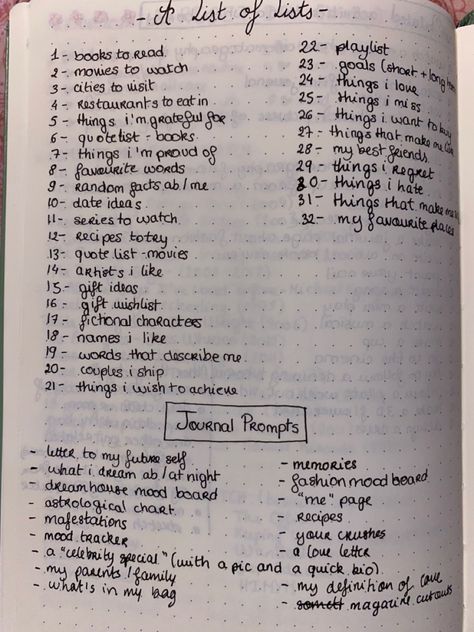 - A List of Lists -
1 - books to read
2 - movies to watch
3 - cities to visit
4 - restaurants to eat in
5 - things i'm grateful for
6 - quote list - books
7 - things i'm proud of
8 - favourite words
9 - random facts ab/me
10 - date ideas
11 - series to watch
12 - recipes to try
13 - quote list - movies
14 - artists i like
15 - gift ideas
16 - gift wishlist
17 - fictional characters
18 - names i like
19 - words that describe me
20 - couples i ship
21 - things i wish to achieve
22 - playlist
23 - goals (short + long
24 - things i love
25 - things i miss
26 - things i want to buy
27 - things that make me
28 - my best friends
29 - things i regret
30 - things i hate
31 - things that make me
32 - my favourite places
Journal Prompts
- letter to my future self
- what i dream ab/at night
- dreamhouse mood board
- astrological chart
- mafestations
- mood tracker
- a "celebrity special" (with a pic and a quick bio)
- my parents/family
- what's in my bag
- memories
- fashion mood board
- "me" page
- recipes
- your crushes
- a love letter
- my definition of love
- magazine cutouts